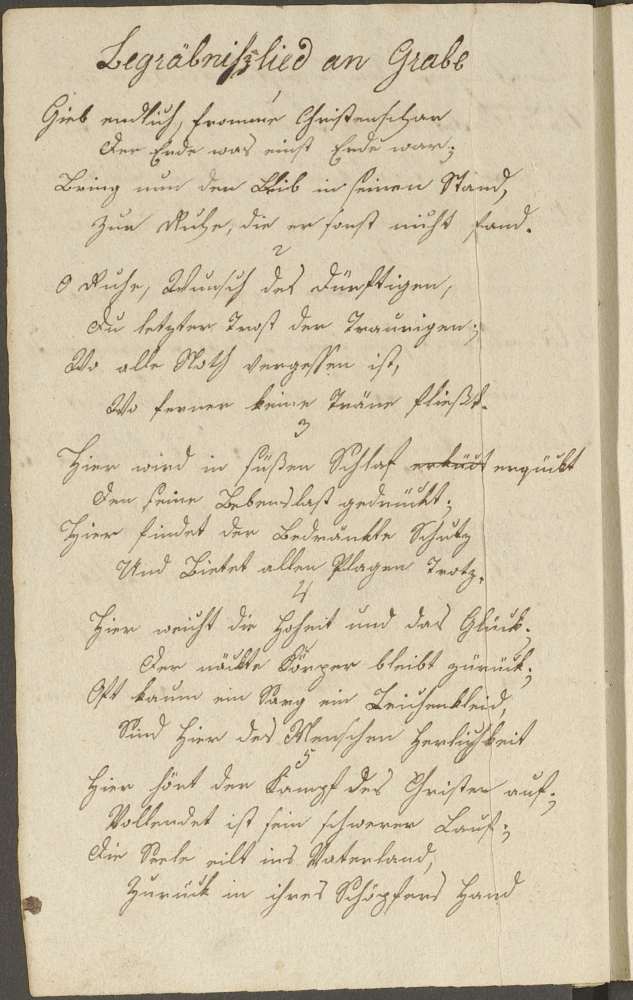 Begräbnißlied an Grabe
1
Gieb endlich, fromme Christenschar
Der Erde was einst Erde war;
Bring nun den Leib in seinen Stand,
Zur Ruhe, die er sonst nicht fand.
2
O Ruhe, Wunsch des Dürftigen,
Du letzter Trost der Traurigen;
Wo alle Noth vergessen ist,
Wo ferner keine Träne fließt.
3
Hier wird in süßen Schlaf erquickt
Den seine Lebenslast gedrückt;
Hier findet der Bedränkte Schutz
Und Bietet allen Plagen Trotz.
4
Hier weicht die Hoheit und das Glück;
Der näckte Körper bleibt zürück;
Oft kaum ein Sarg ein Leichenkleid,
Sind Hier des Menschen Herlichkeit
5
Hier hört der Kampf des Christen auf;
Vollendet ist sein schwerer Lauf;
Die Seele eilt ins Vaterland,
Zurück in ihres Schöpfers Hand